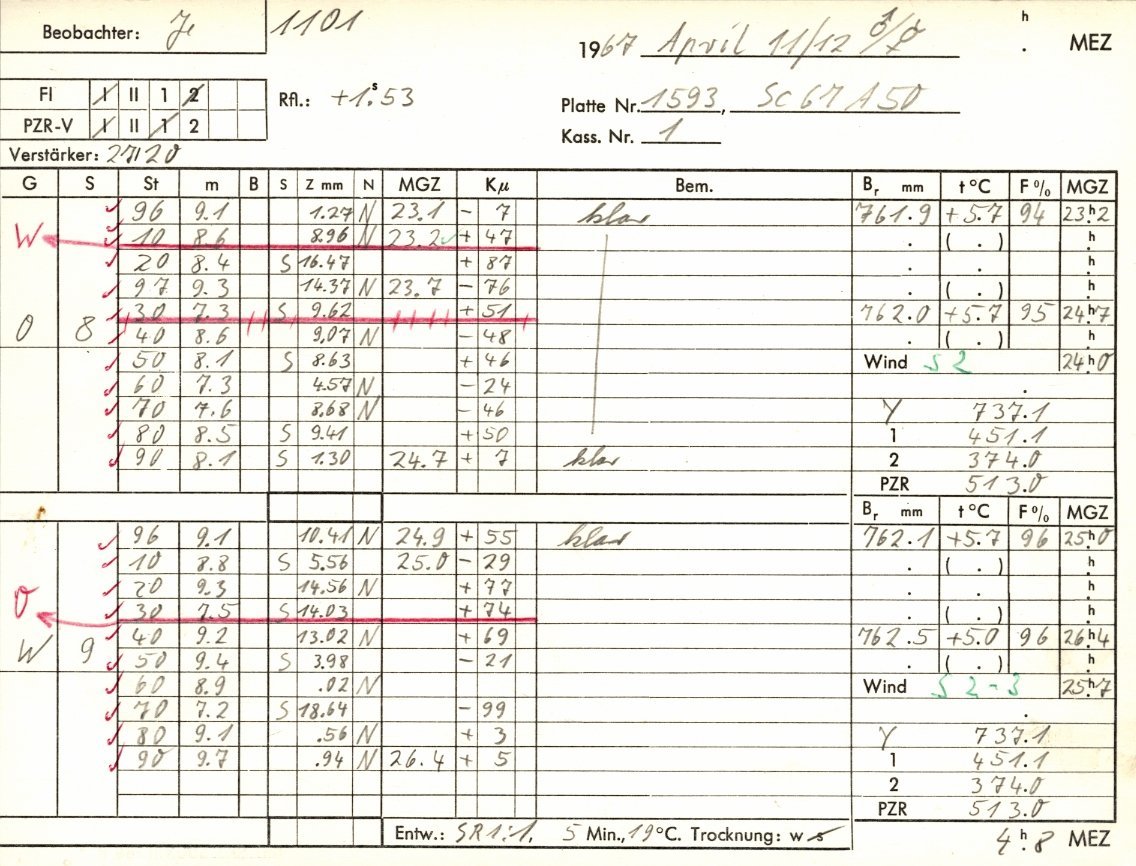 Beobachter: Je 1101
1967 April 11/12 ♂/☿ h . MEZ
Fl I II 1 2 Rfl.: +1.ˢ53
PZR-V I II 1 2 Platte Nr. 1593, Sc 67 A 50
Kass. Nr. 1
Verstärker: 27/20
G S St m B S Z mm N MGZ Kμ Bem. Br mm t °C F % MGZ
96 9.1 1.27 N 23.1 - 7 klar 761.9 +5.7 94 23ʰ2
W 10 8.6 8.96 N 23.2 + 47 . ( . ) h
20 8.4 S 16.47 + 87 . . h
97 9.3 14.37 N 23.7 - 76 . ( . ) h
30 7.3 S 9.62 + 51 762.0 +5.7 95 24ʰ7
O 8 40 8.6 9,07 N - 48 . ( . ) h
50 8.1 S 8.63 + 46 Wind S 2 24ʰ0
60 7.3 4.57 N - 24 .
70 7.6 8,68 N - 46 Y 737.1
80 8.5 S 9.41 + 50 1 451.1
90 8.1 S 1.30 24.7 + 7 klar 2 374.0
PZR 513.0
Br mm t °C F % MGZ
96 9.1 10.41 N 24.9 + 55 klar 762.1 +5.7 96 25ʰ0
10 8.8 S 5.56 25.0 - 29 . ( . ) h
20 9.3 14.56 N + 77 . . h
O 30 7.5 S 14.03 + 74 . ( . ) h
40 9.2 13.02 N + 69 762.5 +5.0 96 26ʰ4
W 9 50 9.4 S 3.98 - 21 . ( . ) h
60 8.9 .02 N Wind S 2-3 25ʰ7
70 7.2 S 18.64 - 99 .
80 9.1 .56 N + 3 Y 737.1
90 9.7 .94 N 26.4 + 5 1 451.1
2 374.0
PZR 513.0
Entw.: SR 1:1, 5 Min., 19 °C. Trocknung: w s 4ʰ.8 MEZ